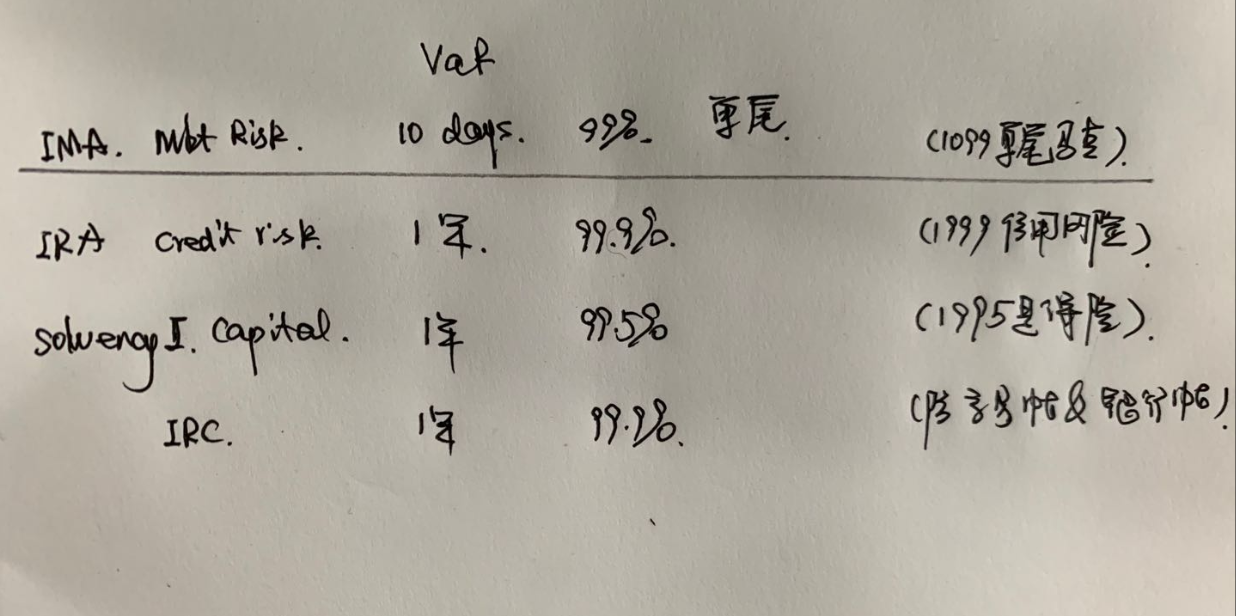 VaR
IMA. Mkt Risk. 10 days. 99%. 单尾. (1099单尾马克).
IRA credit risk. 1年. 99.9%. (1999信用风险).
Solvency I. Capital. 1年 99.5% (1995是保险).
IRC. 1年 99.9%. (防交易帐&银行帐)